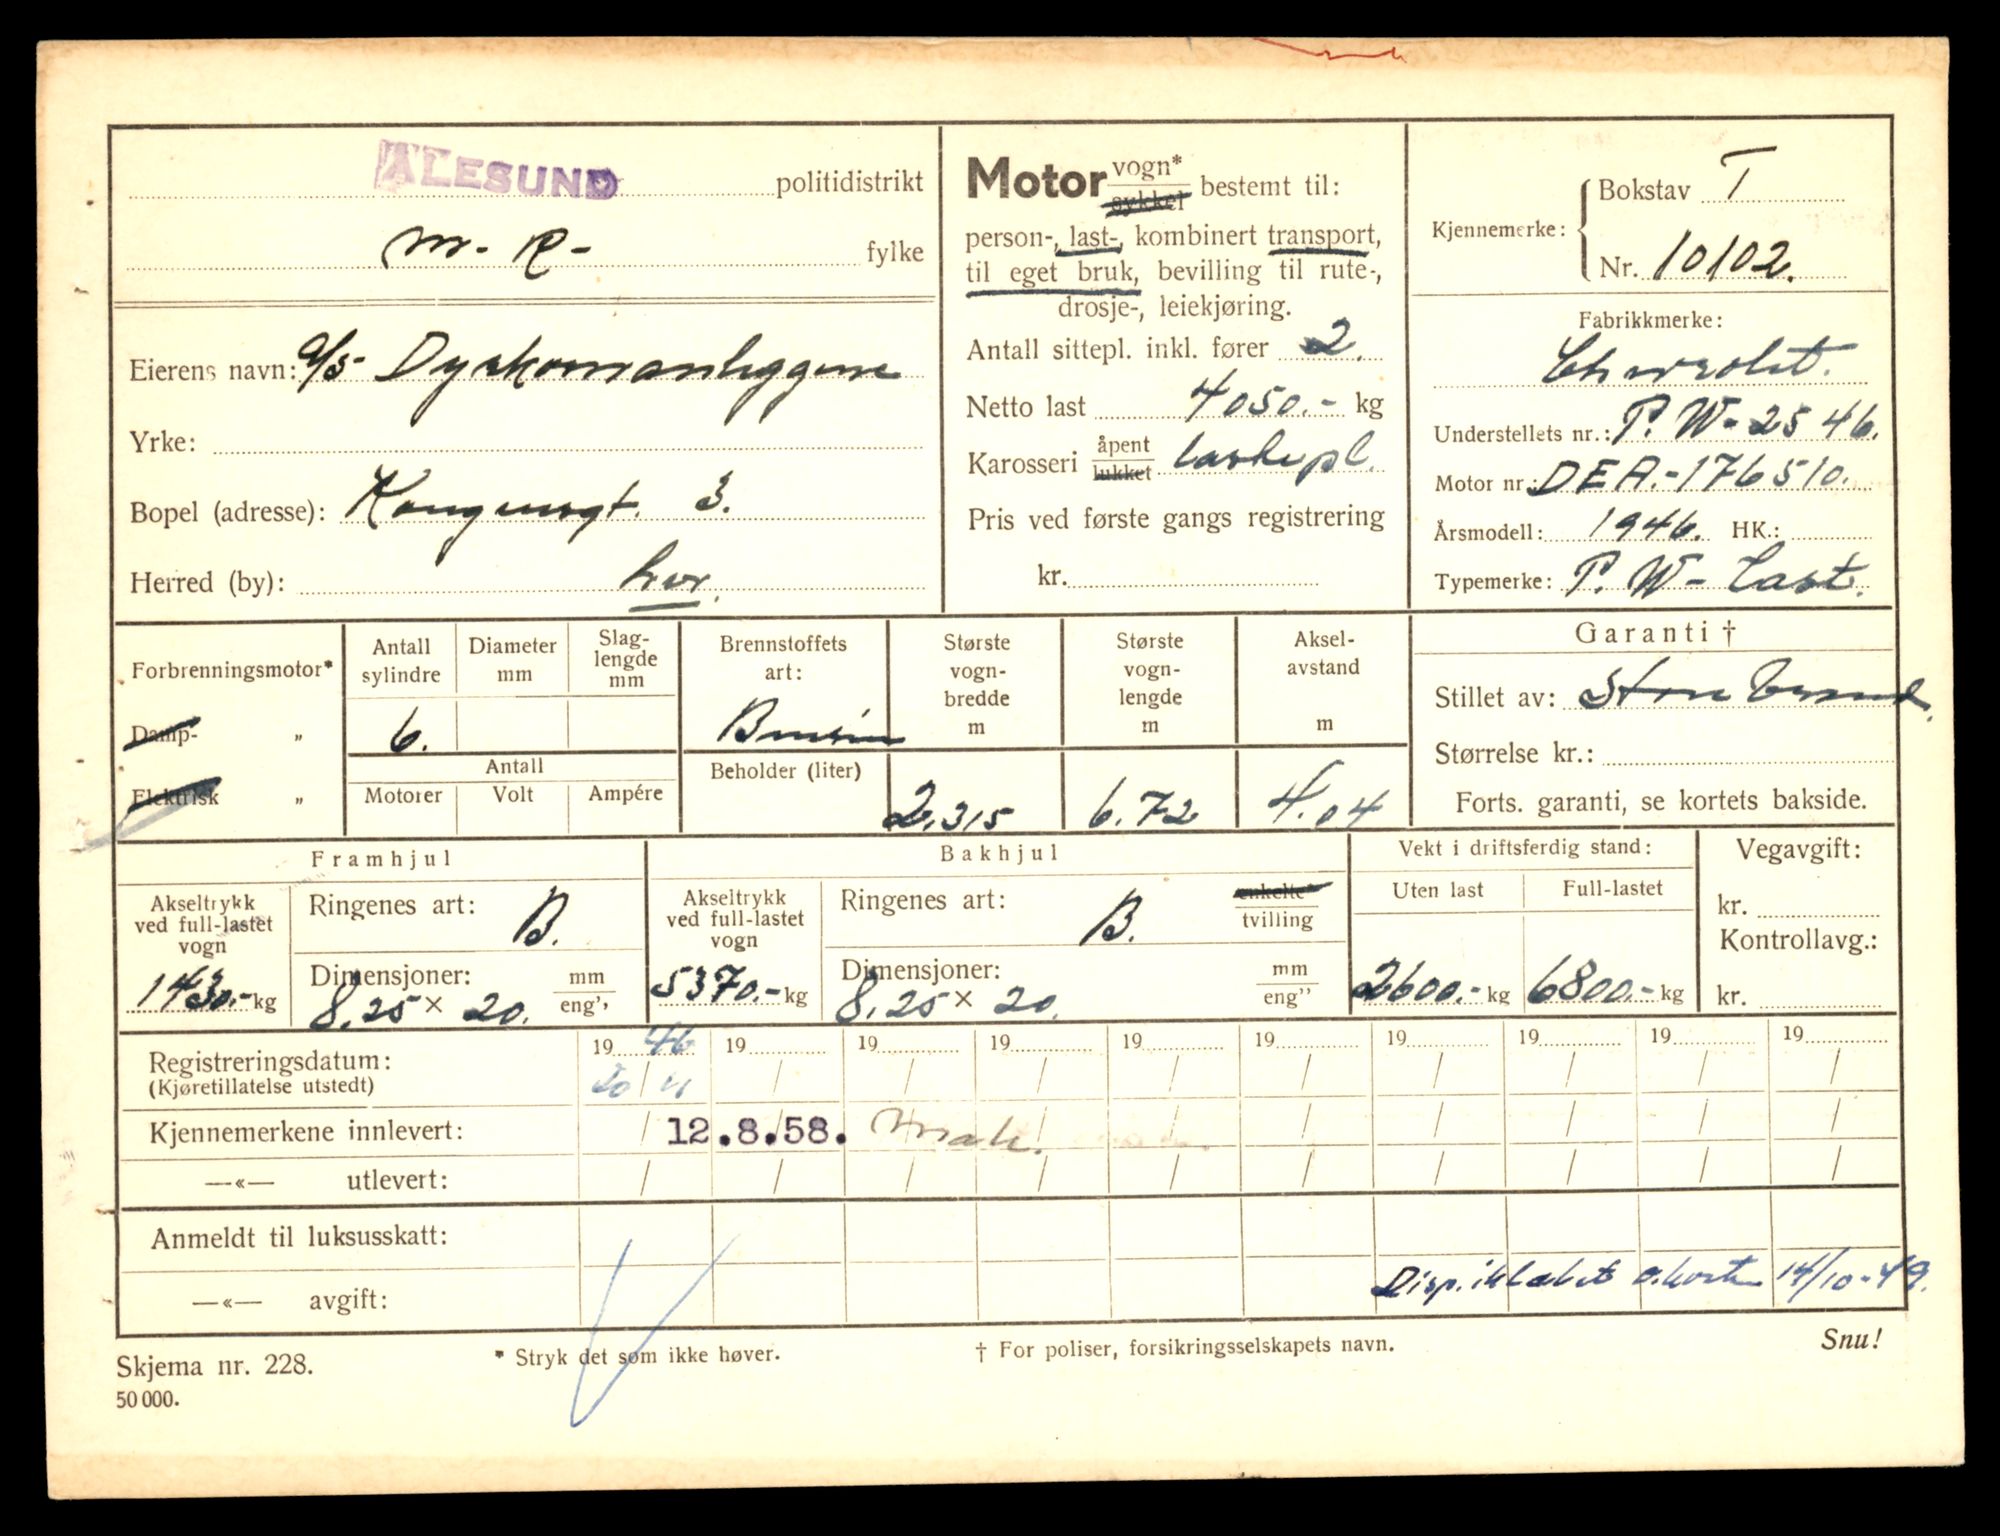 ÅLESUND politidistrikt
M.- R- fylke
Eierens navn: a/s- Dyrkomanleggene
Yrke:
Bopel (adresse): Kongensgt. 3.
Herred (by): her.
Motor vogn* sykkel bestemt til:
person-, last-, kombinert transport,
til eget bruk, bevilling til rute-,
drosje-, leiekjøring.
Antall sittepl. inkl. fører 2.
Netto last 4050.- kg
Karosseri åpent lukket lastepl.
Pris ved første gangs registrering
kr.
Kjennemerke: Bokstav T
Nr. 10102.
Fabrikkmerke:
Chevrolet.
Understellets nr.: P.W-2546.
Motor nr.: DEA.-176510.
Årsmodell: 1946. HK.:
Typemerke: P.W- Last.
Forbrenningsmotor*
Damp- „
Elektrisk „
Antall sylindre
6.
Diameter mm
Slag-lengde mm
Antall
Motorer Volt Ampére
Brennstoffets art:
Bensin
Beholder (liter)
Største vogn-bredde m
2.315
Største vogn-lengde m
6.72
Aksel-avstand m
4.04
Garanti †
Stillet av: Store
Størrelse kr.:
Forts. garanti, se kortets bakside.
Framhjul
Akseltrykk ved full-lastet vogn
1430.- kg
Ringenes art: B.
Dimensjoner: mm eng''
8.25 × 20.
Bakhjul
Akseltrykk ved full-lastet vogn
5370.- kg
Ringenes art: B. enkelte* tvilling
Dimensjoner: mm eng''
8.25 × 20.
Vekt i driftsferdig stand:
Uten last Full-lastet
2600.- kg 6800.- kg
Vegavgift:
kr.
Kontrollavg.:
kr.
Registreringsdatum: 19 46 19 19 19 19 19 19 19 19 19
(Kjøretillatelse utstedt) 20 / 11 / / / / / / / / /
Kjennemerkene innlevert: / 12.8.58. / / / / / / / /
—«— utlevert: / / / / / / / / / /
Anmeldt til luksusskatt:
—«— avgift:
14/10-49.
* Stryk det som ikke høver.
† For poliser, forsikringsselskapets navn.
Snu!
Skjema nr. 228.
50 000.